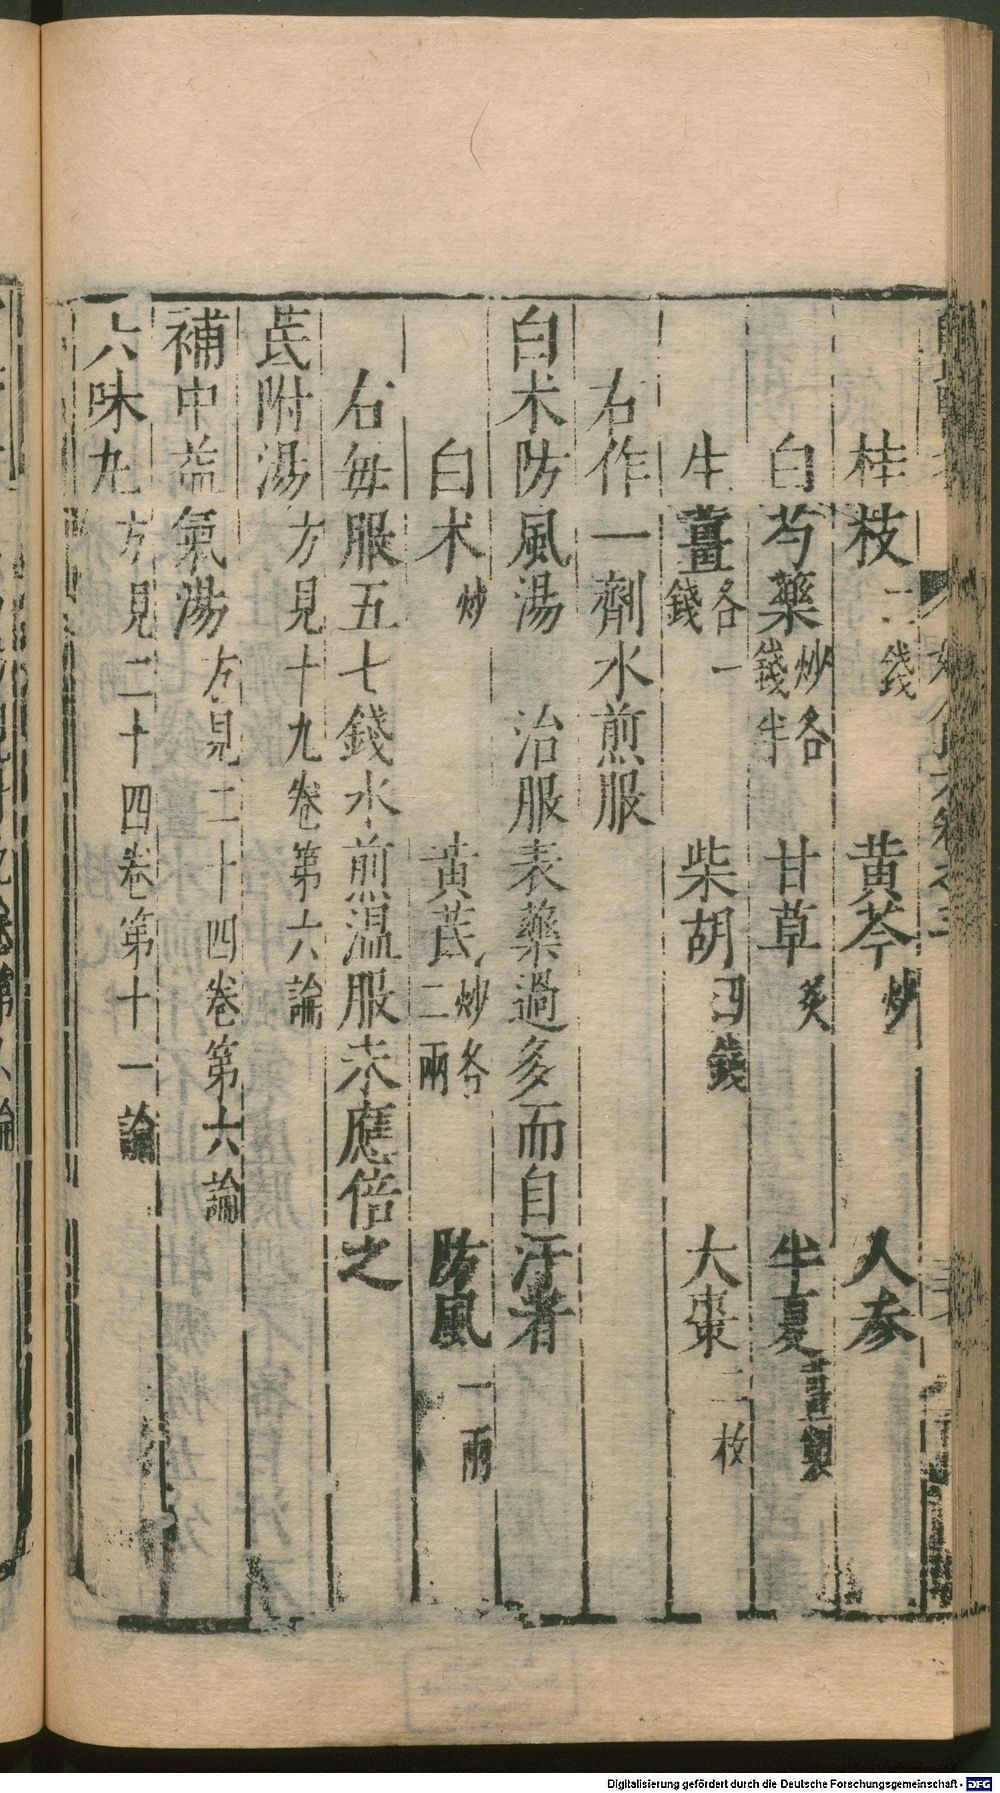 桂枝二錢 黄芩炒 人参
白芍藥炒各錢半 甘草炙 半夏薑製
生薑各一錢 柴胡四錢 大棗二枚
右作一劑水煎服
白术防風湯 治服表藥過多而自汗者
白术炒 黄芪炒各二兩 防風一兩
右毎服五七錢水煎温服未應倍之
芪附湯方見十九卷第六論
補中益氣湯方見二十四卷第六論
六味丸方見二十四卷第十一論
Digitalisierung gefördert durch die Deutsche Forschungsgemeinschaft - DFG